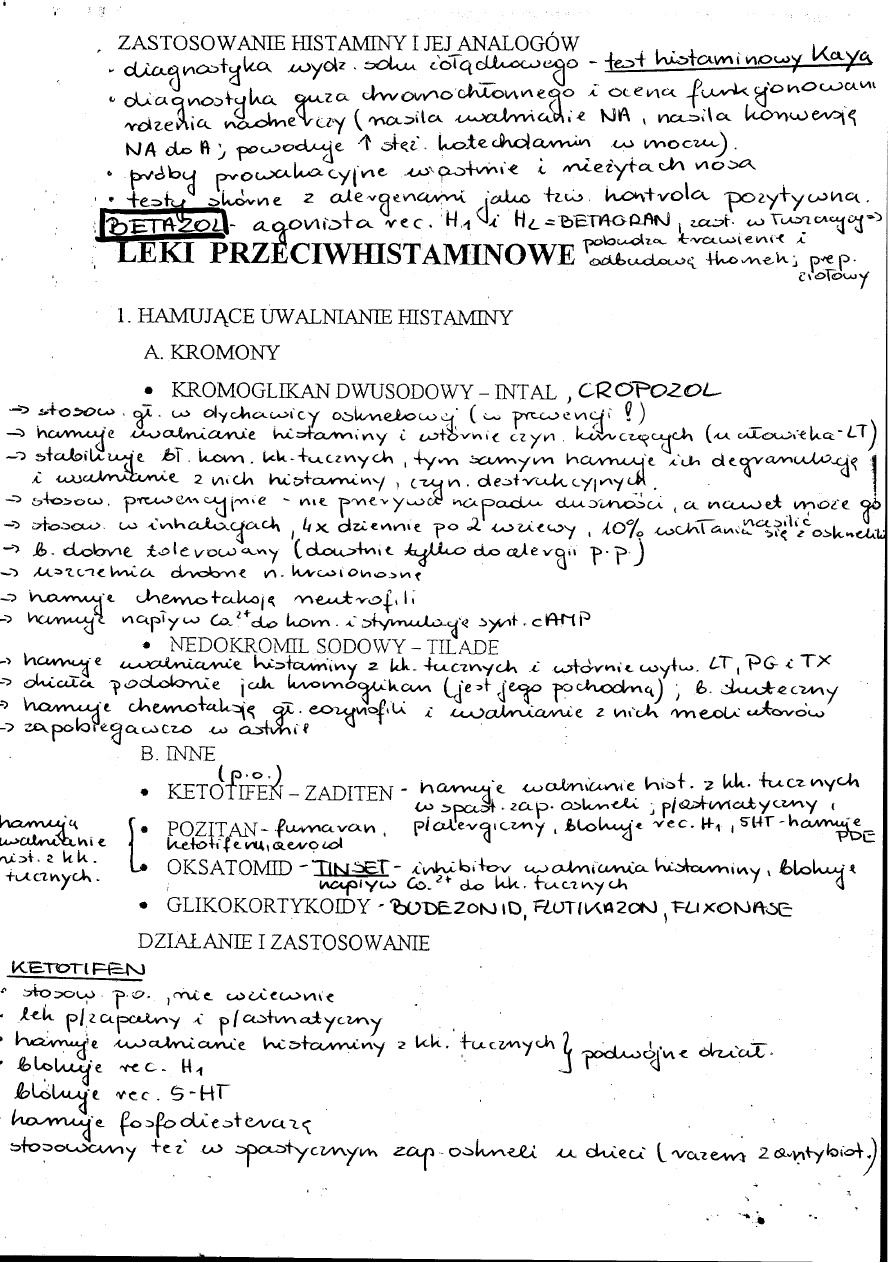 ZASTOSOWANIE HISTAMINY I JEJ ANALOGÓW
• diagnostyka wydz. soku żołądkowego - test histaminowy Kaya
• diagnostyka guza chromochłonnego i ocena funkcjonowani
rdzenia nadnerczy (nasila uwalnianie NA, nasila konwersję
NA do A; powoduje ↑ stęż. katecholamin w moczu).
• próby prowokacyjne w astmie i nieżytach nosa
• testy skórne z alergenami jako tzw. kontrola pozytywna.
BETAZOL - agonista rec. H1 i H2 = BETAGRAN, zast. w
LEKI PRZECIWHISTAMINOWE pobudza trawienie i
odbudową tkanek; prep.
ziołowy
1. HAMUJĄCE UWALNIANIE HISTAMINY
A. KROMONY
• KROMOGLIKAN DWUSODOWY – INTAL, CROPOZOL
→ stosow. gł. w dychawicy oskrzelowej (w prewencji!)
→ hamuje uwalnianie histaminy i wtórnie czyn. kurczących (u człowieka - LT)
→ stabilizuje bł. kom. kk. tucznych, tym samym hamuje ich degranulację
i uwalnianie z nich histaminy, czyn. destrukcyjnych.
→ stosow. prewencyjnie - nie przerywa napadu duszności, a nawet może go
nasilić
→ stosow. w inhalacjach, 4x dziennie po 2 wziewy, 10% wchłania się z oskrzeli
→ b. dobrze tolerowany (doustnie tylko do alergii p.p)
→ uszczelnia drobne n. krwionośne
→ hamuje chemotaksję neutrofili
→ hamuje napływ Ca²⁺ do kom. i stymuluje synt. cAMP
• NEDOKROMIL SODOWY – TILADE
→ hamuje uwalnianie histaminy z kk. tucznych i wtórnie wytw. LT, PG i TX
→ działa podobnie jak kromoglikan (jest jego pochodną); b. skuteczny
→ hamuje chemotaksję gł. eozynofili i uwalnianie z nich mediatorów
→ zapobiegawczo w astmie
B. INNE
(p.o.)
• KETOTIFEN – ZADITEN - hamuje walnianie hist. z kk. tucznych
w spast. zap. oskrzeli; p/astmatyczny,
p/alergiczny, blokuje rec. H1, 5HT - hamuje
PDE
hamują
uwalnianie
hist. z kk.
tucznych.
• POZITAN - fumaran,
ketotifenu, aerozol
• OKSATOMID - TINSET - inhibitor uwalniania histaminy, blokuje
napływ Ca²⁺ do kk. tucznych
• GLIKOKORTYKOIDY - BUDEZONID, FLUTIKAZON, FLIXONASE
DZIAŁANIE I ZASTOSOWANIE
KETOTIFEN
• stosow. p.o., nie wziewnie
• lek p/zapalny i p/astmatyczny
• hamuje uwalnianie histaminy z kk. tucznych } podwójne dział.
• blokuje rec. H1
blokuje rec. 5-HT
hamuje fosfodiesterazę
stosowany też w spastycznym zap. oskrzeli u dzieci (razem z antybiot.)